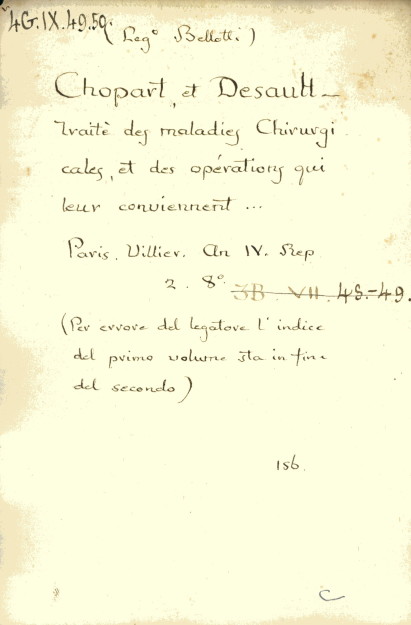 4G.IX.49.50.
(Leg° Bellotti)
Chopart, et Desault –
Traité des maladies Chirurgi
cales, et des opérations qui
leur conviennent ...
Paris. Villier. An IV. Rep
2. 8° 3B. VII. 48.-49.
(Per errore del legatore l'indice
del primo volume sta in fine
del secondo)
156.
C